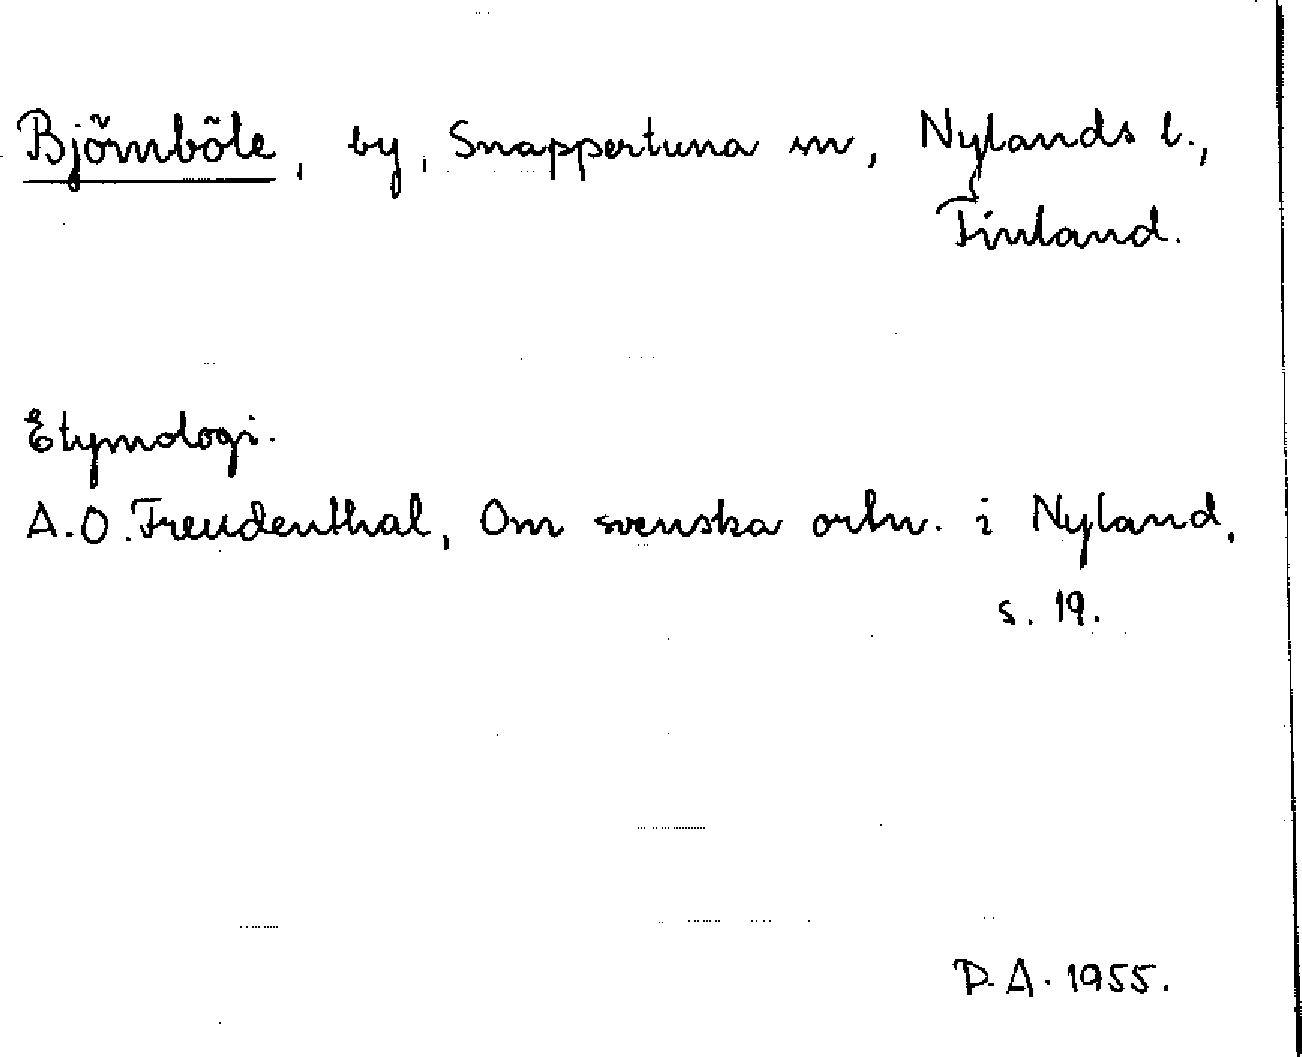 Björnböle, by, Snappertuna sn, Nylands l.,
Finland.
Etymologi.
A.O. Freudenthal, Om svenska ortn. i Nyland,
s. 19.
D.A. 1955.